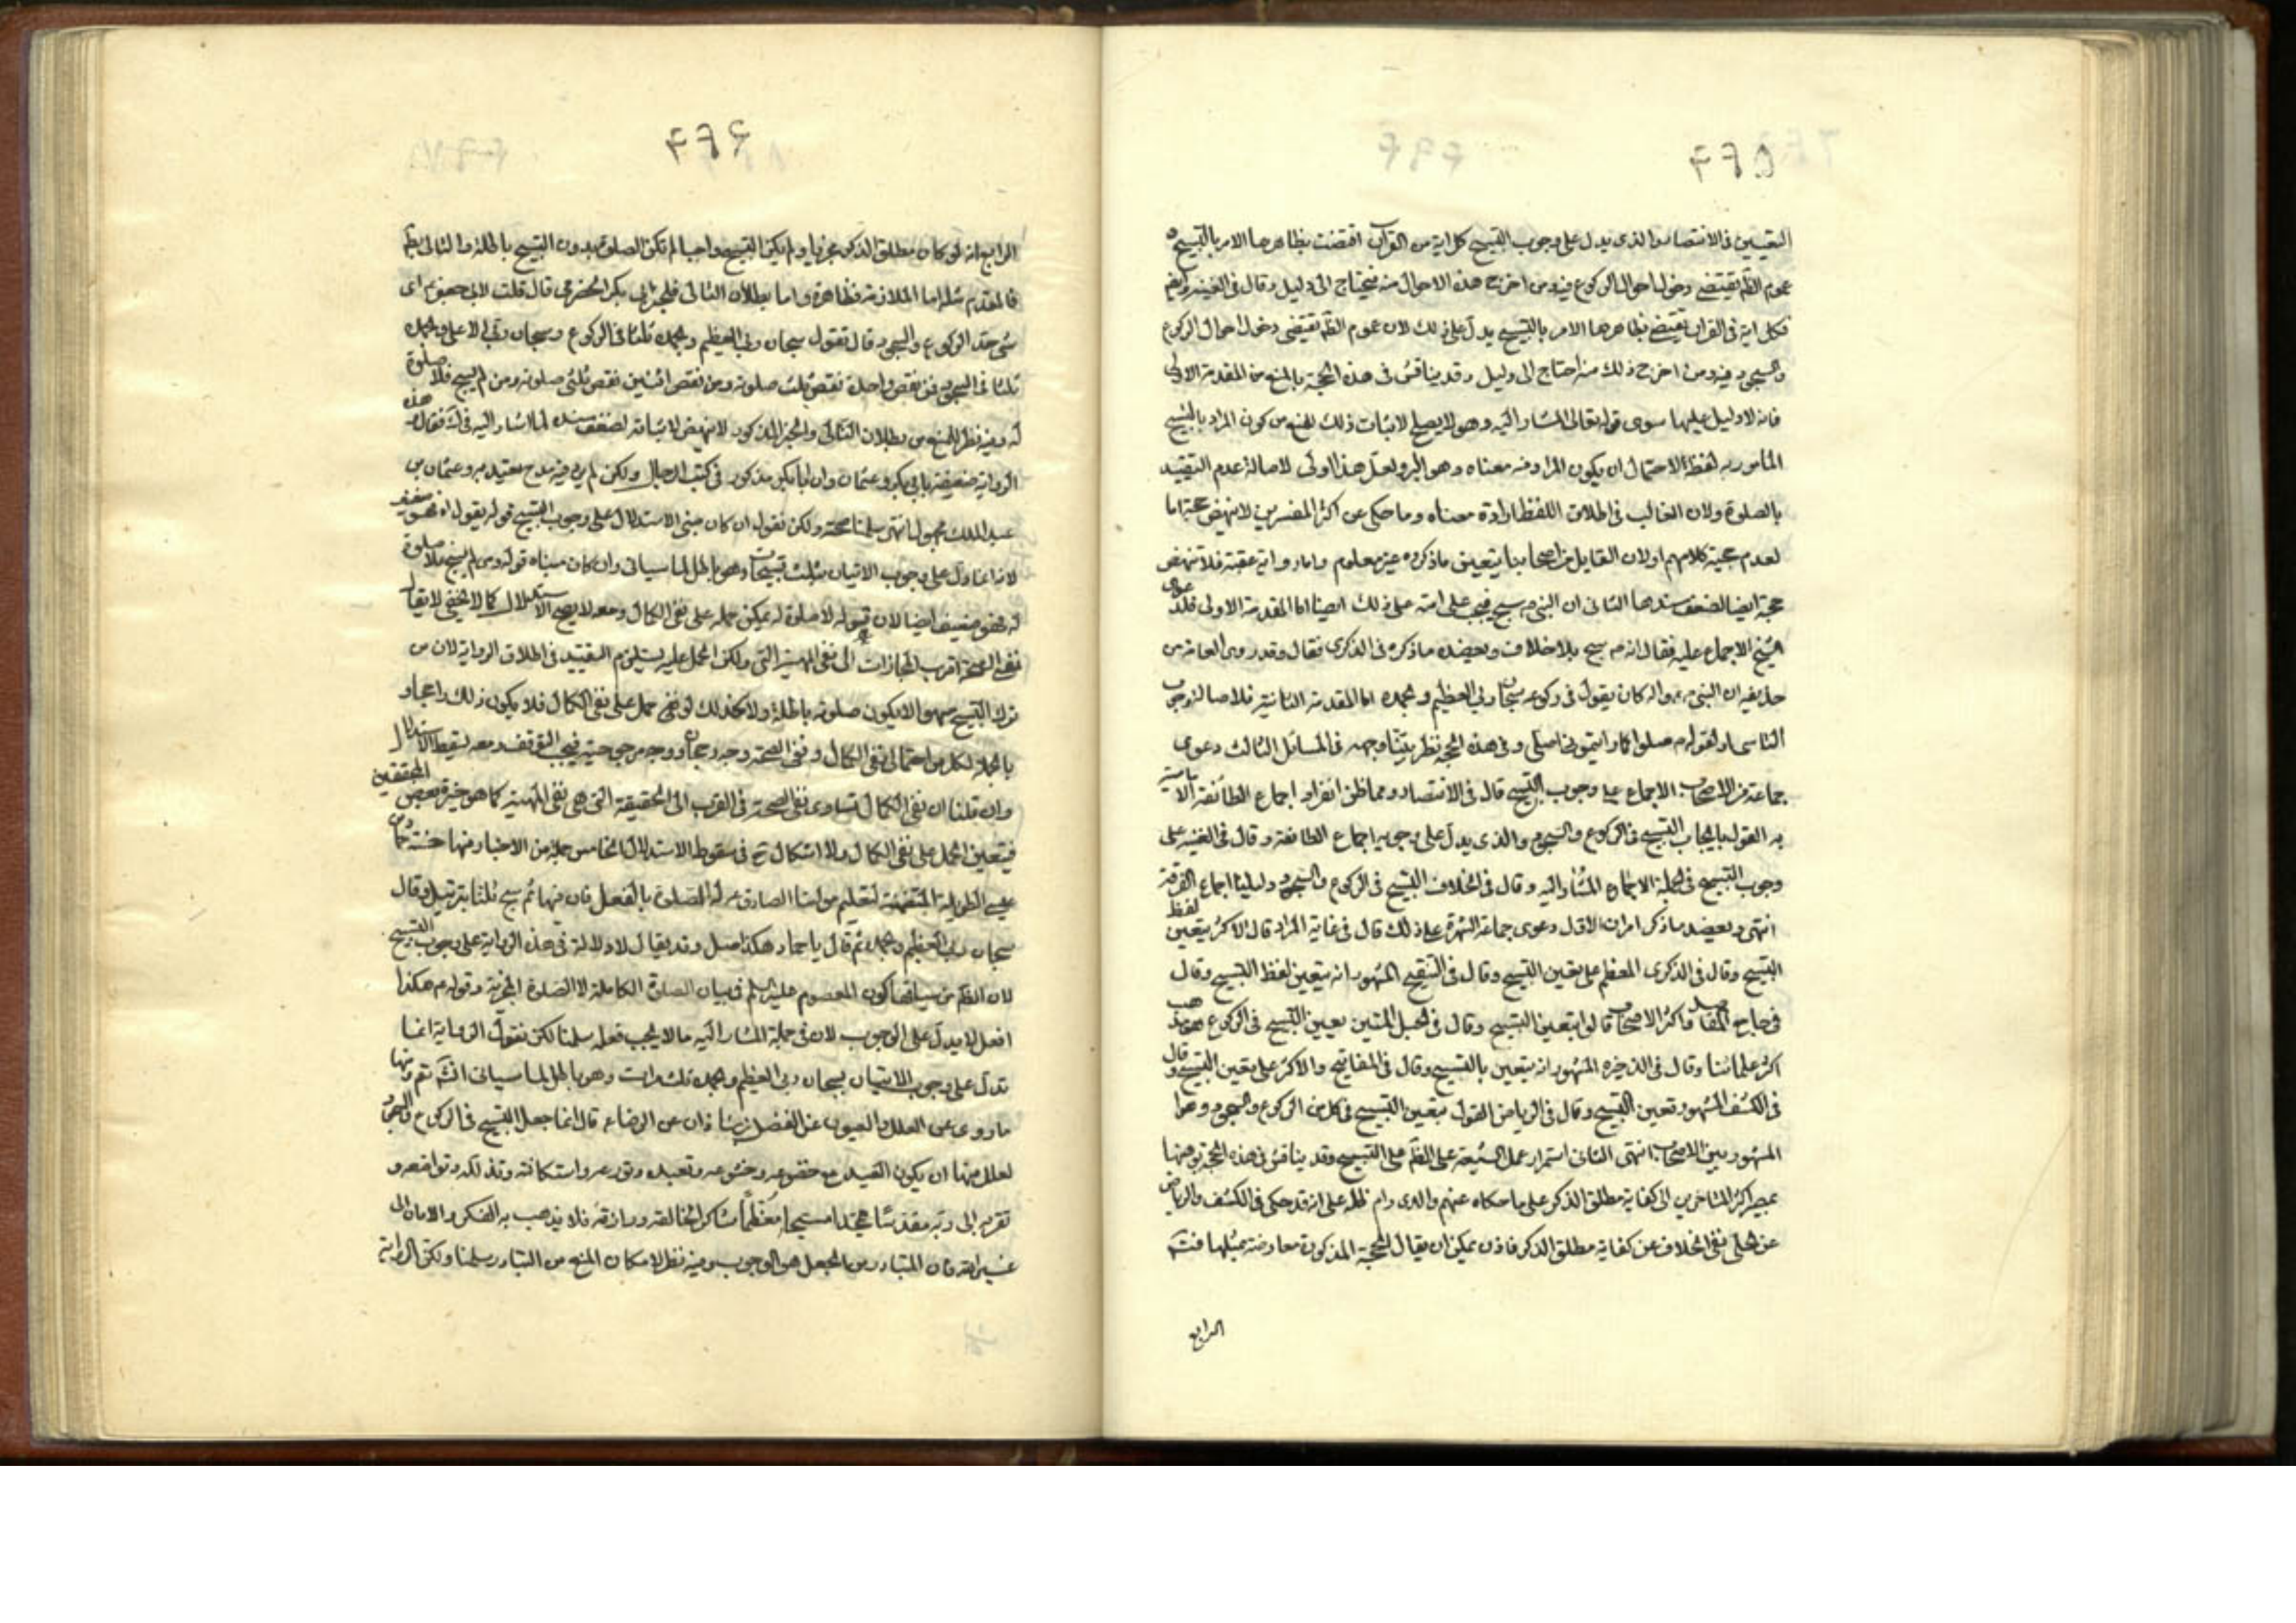 ۴۶۵
التعيين في الانتصار والذي يدل على وجوب التسبيح كل اية من القرآن اقتضت بظاهرها الامر بالتسبيح و
عموم الظ يقتضي دخول احوال الركوع فيه ومن اخرج هذه الاحوال منه فيحتاج الى دليل وقال في الغنية
فكل اية في القران يقتضي بظاهرها الامر بالتسبيح يدل على ذلك لان عموم الظ يقتضى دخول احوال الركوع
والسجود فيه ومن اخرج ذلك منه احتاج الى دليل وقد يناقش في هذه الحجة بالمنع من المقدمة الاولى
فانه لا دليل عليها سوى قوله تعالى المشار اليه وهو لا يصلح لاثبات ذلك للمنع من كون المراد بالتسبيح
المأمور به لفظه لاحتمال ان يكون المراد منه معناه وهو ولعل هذا اولى لاصالة عدم التقييد
بالصلوة ولان الغالب في اطلاق اللفظ ارادة معناه وما حكى عن اكثر المفسرين لا ينهض حجة اما
لعدم حجية كلامهم اولان القايل من اصحابنا بتعيين ما ذكروه غير معلوم واما رواية عقبة فلا تنهض
حجة ايضا لضعف سندها الثانى ان النبي ص سبح فيجب على امته على ذلك ايضا اما المقدمة الاولى فلدعوى
الشيخ الاجماع عليه فقال انه ص سبح بلا خلاف ويعضده ما ذكره في الذكرى فقال وقد روى العامة من
حذيفه ان النبي ص واله كان يقول في ركوعه سبحان ربي العظيم وبحمده اما المقدمة الثانية فلاصالة وجوب
التاسى ولقوله ص صلوا كما رايتموني اصلى وفي هذه الحجة نظر بيناه وجهه في المسائل الثالث دعوى
جماعة من الاصحاب الاجماع على وجوب التسبيح قال في الانتصار ومما ظن انفراد اجماع الطائفة الامامية
به القول بايجاب التسبيح في الركوع والسجود والذي يدل على وجوبه اجماع الطائفة وقال في الغنية على
وجوب التسبيح في الجملة الاجماع المشار اليه وقال في الخلاف التسبيح في الركوع والسجود دليلنا اجماع الفرقة
انتهى ويعضد ما ذكر امران الاول دعوى جماعة الشهرة على ذلك قال في غاية المراد قال الاكثر يتعين لفظ
التسبيح وقال في الذكرى المعظم على تعين التسبيح وقال في التنقيح المشهور انه يتعين لفظ التسبيح وقال
في جامع المقاصد واكثر الاصحاب قالوا بتعين التسبيح وقال في الحبل المتين تعيين التسبيح في الركوع مذهب
اكثر علمائنا وقال في الذخيره المشهور انه يتعين بالتسبيح وقال في المفاتيح والاكثر على تعين التسبيح وقال
في الكشف المشهور تعين التسبيح وقال في الرياض القول بتعين التسبيح في كل من الركوع والسجود وهو
المشهور بين الاصحاب انتهى الثانى استمرار عمل الشيعة على الظ على التسبيح وقد يناقش في هذه الحجة
بمصير اكثر المتاخرين الى كفاية مطلق الذكر على ما حكاه عنهم والدى دام ظله على انه قد حكى في الكشف والرياض
عن الحلى نفى الخلاف عن كفاية مطلق الذكر فاذن يمكن ان يقال الحجة المذكورة معارضة بمثلها فتم
الرابع
۴۶۶
الرابع انه لو كان مطلق الذكر مجزيا ولم يكن التسبيح واجبا لم تكن الصلوة بدون التسبيح باطلة والتالى بط
فالمقدم مثله اما الملازمة فظاهرة واما بطلان التالى فلخبر ابى بكر الحضرمي قال قلت لابى جعفر ع اى
شئ حد الركوع والسجود قال تقول سبحان ربي العظيم وبحمده ثلثا في الركوع وسبحان ربي الاعلى وبحمده
ثلثا في السجود فمن نقص واحدة نقص ثلث صلوته ومن نقص اثنتين نقص ثلثى صلوته ومن لم يسبح فلا صلوة
له وفيه نظر للمنع من بطلان التالى والخبر المذكور لا ينهض لاثباته لضعف سنده لما اشار اليه في فقال هذه
الرواية ضعيفة بابي بكر وعثمان وان ابا بكر مذكور في كتب الرجال ولكن لم يرد فيه مدح يعتد به وعثمان بن
عبد الملك مجهول انتهى سلمنا صحته ولكن نقول ان كان مبنى الاستدلال على وجوب التسبيح قوله يقول اه فهو ضعيف
لانه انما دل على وجوب الاتيان بثلث تسبيحات وهو باطل لما سياتى وان كان مبناه قوله ومن لم يسبح فلا صلوة
له فهو ضعيف ايضا لان قوله لا صلوة له يمكن حمله على نفى الكمال ومعه لا يصح الاستدلال كما لا يخفى لا يقال
نفى الصحة اقرب المجازات الى نفى المهية التى ولكن الحمل عليه يستلزم التقييد في اطلاق الرواية لان من
ترك التسبيح سهوا لا يكون صلوته باطلة ولا كذلك لو حمل على نفى الكمال فلا يكون ذلك راجحا و
بالجملة لكل من احتمالى نفى الكمال ونفى الصحة وجه رجحان ووجه مرجوحية فيجب التوقف ومعه يسقط الاستدلال
وان قلنا ان نفى الكمال تساوى نفى الصحة في القرب الى الحقيقة التى هى نفى المهية كما هو خيرة بعض المحققين
فيتعين الحمل على نفى الكمال ولا اشكال ح في سقوط الاستدلال الخامس جملة من الاخبار منها حسنة حماد بن
عيسى الطويلة المتضمنة لتعليم مولينا الصادق ع له الصلوة بالفعل فان فيها ثم سبح ثلثا بترتيل وقال
سبحان ربي العظيم وبحمده ثم قال يا حماد هكذا صل وقد يقال لا دلالة في هذه الرواية على وجوب التسبيح
لان الظ من سياقها كون المعصوم عليه السلم في بيان الصلوة الكاملة لا الصلوة المجزية وقوله ع هكذا
افعل لا يدل على الوجوب لان في جملة المشار اليه ما لا يجب فعله سلمنا لكن نقول الرواية انما
تدل على وجوب الاتيان بسبحان ربي العظيم وبحمده ثلث مرات وهو باطل لما سياتى انشاء الله تع ومنها
ما روى عن العلل والعيون عن الفضل بن شاذان عن الرضا ع قال انما جعل التسبيح في الركوع والسجود
لعلل منها ان يكون العبد مع خضوعه وخشوعه وتعبده وتورعه واستكانته وتذلله وتواضعه و
تقربه الى ربه مقدسا ممجدا مسبحا معظما شاكرا لخالقه ورازقه فلا يذهب به الفكر والامانى الى
غير الله فان المتبادر من الجعل هو الوجوب وفيه نظر لامكان المنع من التبادر سلمنا ولكن الرواية